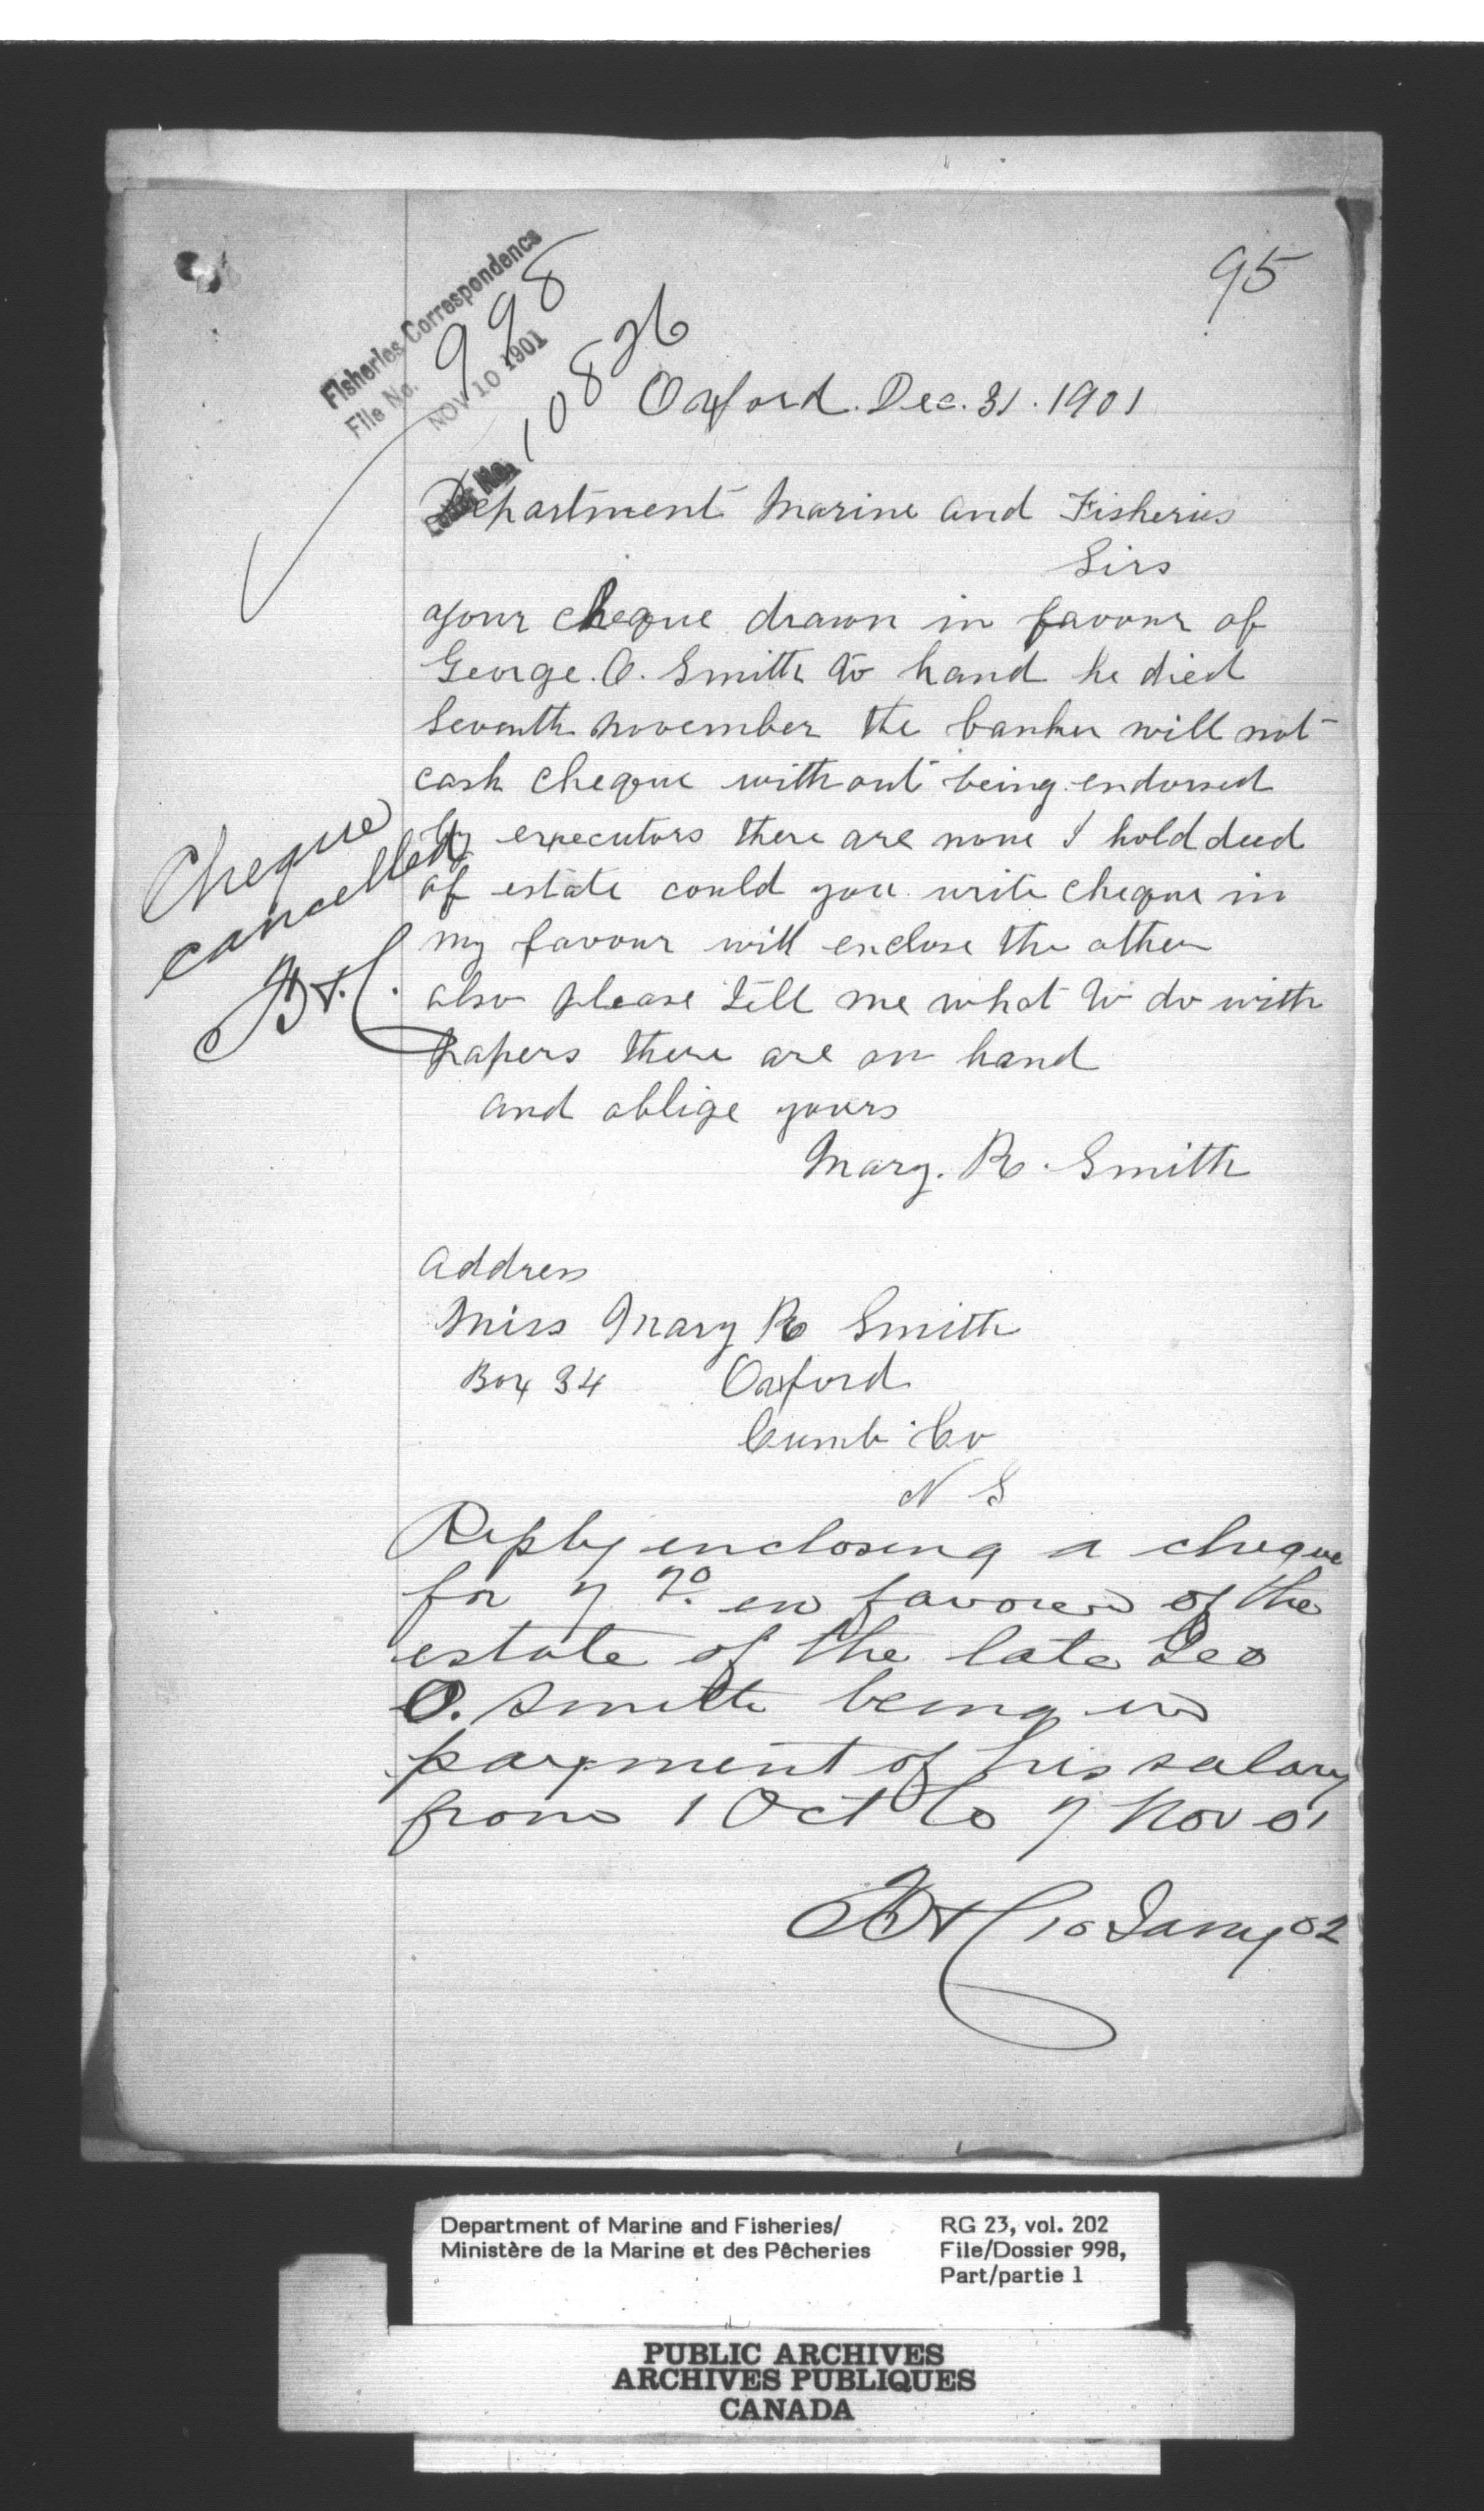 95
Fisheries Correspondence
File No. 998
NOV 10 1901
10826
Letter No.
Oxford. Dec. 31. 1901
Department Marine and Fisheries
Sirs
your cheque drawn in favour of
George. O. Smith to hand he died
Seventh november the banker will not
cash cheque without being endorsed
by executors there are none I hold deed
of estate could you write cheque in
my favour will enclose the other
also please tell me what to do with
papers there are on hand
and oblige yours
Mary. R. Smith
Cheque
cancelled
Address
Miss Mary R Smith
Box 34 Oxford
Cumb Co
N S
Reply enclosing a cheque
for 7 70 in favour of the
estate of the late Geo
O. Smith being in
payment of his salary
from 1 Oct to 7 Nov 01
10 Jany 02
Department of Marine and Fisheries/
Ministère de la Marine et des Pêcheries
RG 23, vol. 202
File/Dossier 998,
Part/partie 1
PUBLIC ARCHIVES
ARCHIVES PUBLIQUES
CANADA